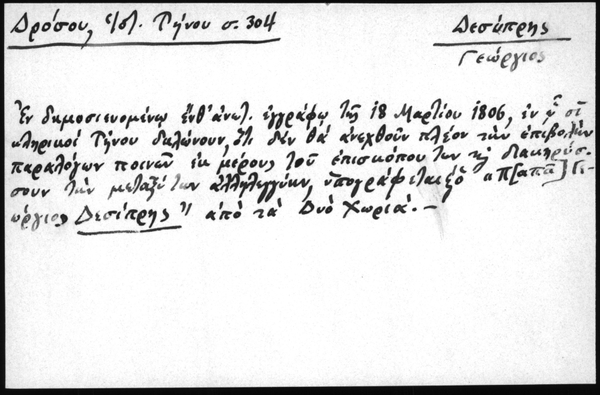 Δρόσου, Ἱστ. Τήνου σ. 304
Δεσύπρης
Γεώργιος
Ἐν δημοσιευομένῳ ἔνθ' ἀνωτ. ἐγγράφῳ τῆς 18 Μαρτίου 1806, ἐν ᾧ οἱ
κληρικοί Τήνου δηλώνουν, ὅτι δέν θά ἀνεχθοῦν πλέον τήν ἐπιβολήν
παραλόγων ποινῶν ἐκ μέρους τοῦ ἐπισκόπου των καί διακηρύσ-
σουν τήν μεταξύ των ἀλληλεγγύην, ὑπογράφεται ὁ "π[απᾶ] Γε-
ώργιος Δεσύπρης" ἀπό τά Δυό Χωριά.—